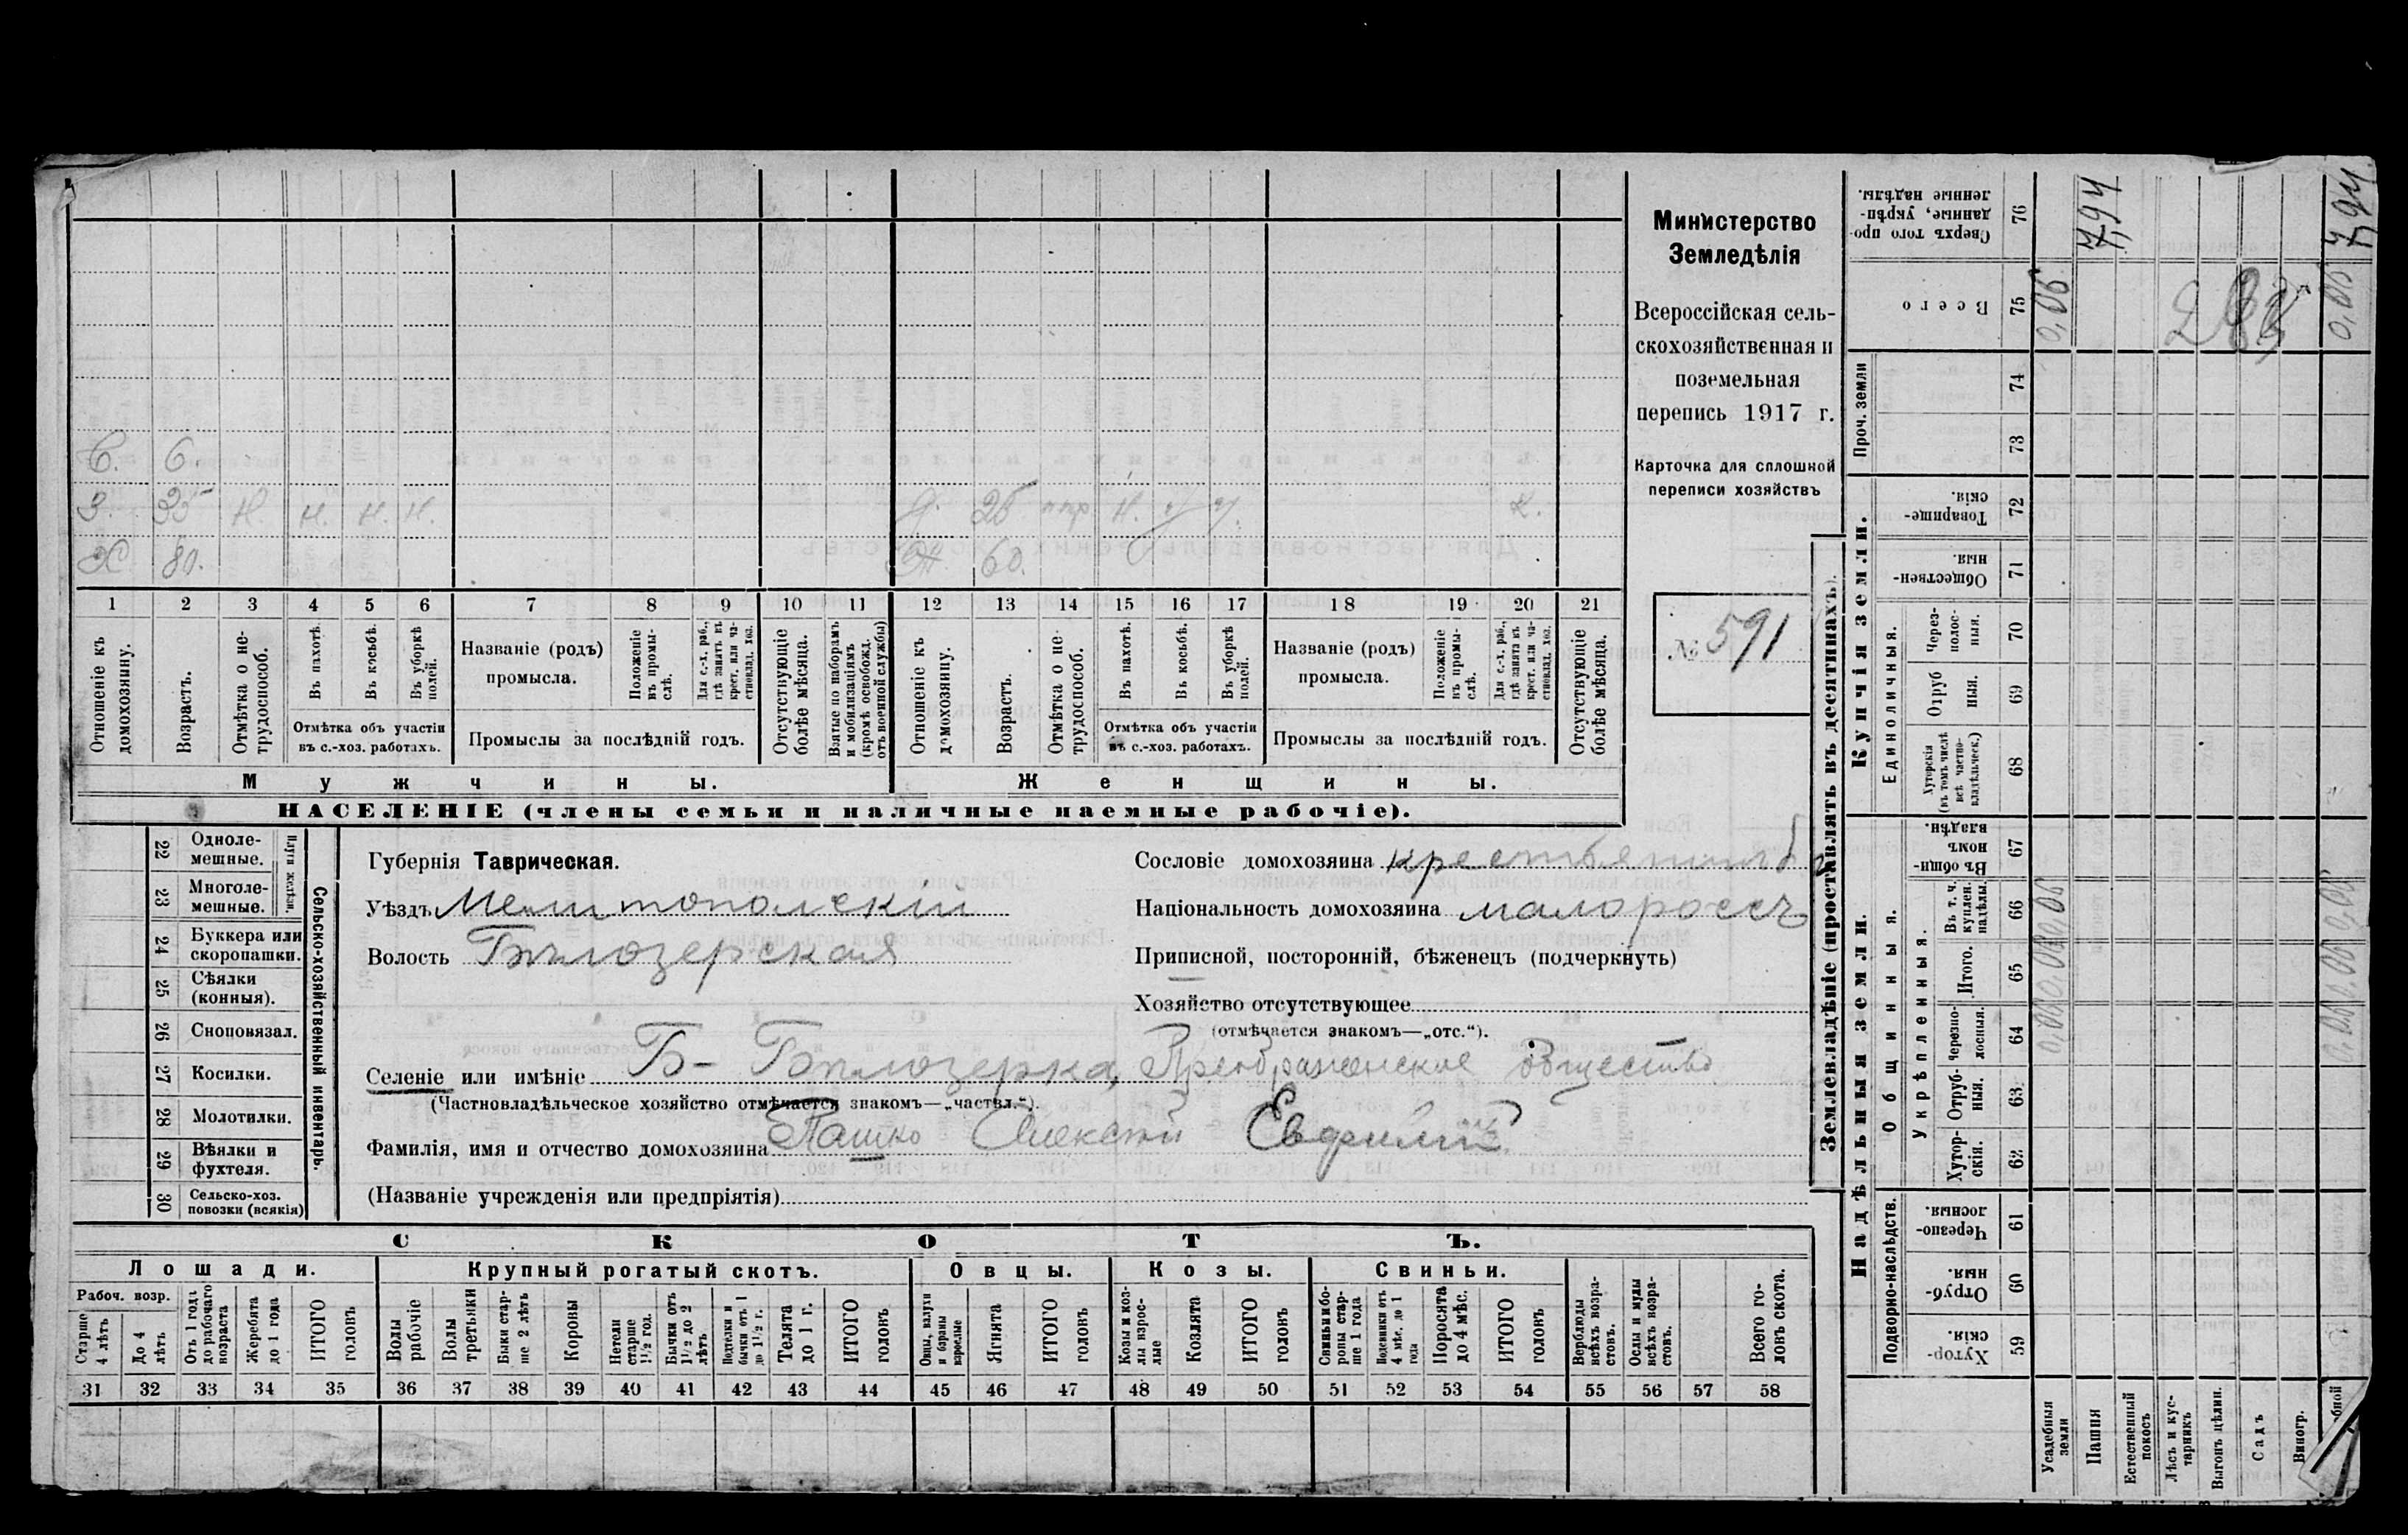 Министерство
Земледѣлія
Всероссійская сель-
скохозяйственная и
поземельная
перепись 1917 г.
Карточка для сплошной
переписи хозяйствъ
№ 591
С. 6.
З. 35 Н. Н. Н. Н. 26 Н.
Х 80. Ж. 60.
1 2 3 4 5 6 7 8 9 10 11 12 13 14 15 16 17 18 19 20 21
Отношеніе къ домохозяину.
Возрастъ.
Отмѣтка о не-трудоспособ.
Въ пахотѣ.
Въ косьбѣ.
Въ уборкѣ полей.
Отмѣтка объ участіи
въ с.-хоз. работахъ.
Названіе (родъ)
промысла.
Положеніе въ промы-слѣ.
Для с.-х. раб., гдѣ занятъ въ крест. или ча-стновлад. хоз.
Промыслы за послѣдній годъ.
Отсутствующіе болѣе мѣсяца.
Взятые по наборамъ и мобилизаціямъ (кромѣ освобожд. отъ военной службы)
Отношеніе къ домохозяину.
Возрастъ.
Отмѣтка о не-трудоспособ.
Въ пахотѣ.
Въ косьбѣ.
Въ уборкѣ полей.
Отмѣтка объ участіи
въ с.-хоз. работахъ.
Названіе (родъ)
промысла.
Положеніе въ промы-слѣ.
Для с.-х. раб., гдѣ занята въ крест. или ча-стновлад. хоз.
Промыслы за послѣдній годъ.
Отсутствующіе болѣе мѣсяца.
Мужчины.
Женщины.
НАСЕЛЕНІЕ (члены семьи и наличные наемные рабочіе).
Сельско-хозяйственный инвентарь.
Плуги желѣзн.
22 Одноле-мешные.
23 Многоле-мешные.
24 Буккера или скоропашки.
25 Сѣялки (конныя).
26 Сноповязал.
27 Косилки.
28 Молотилки.
29 Вѣялки и фухтеля.
30 Сельско-хоз. повозки (всякія)
Губернія Таврическая.
Уѣздъ Мелитопольскій
Волость Бѣлозерская
Сословіе домохозяина крестьянинъ
Національность домохозяина малороссъ
Приписной, посторонній, бѣженецъ (подчеркнуть)
Хозяйство отсутствующее
(отмѣчается знакомъ—„отс.“).
Селеніе или имѣніе Б- Бѣлозерка, Преображенское общество
(Частновладѣльческое хозяйство отмѣчается знакомъ—„частвл.“).
Фамилія, имя и отчество домохозяина Пашко Алексѣй
(Названіе учрежденія или предпріятія)
СКОТЪ.
Лошади.
Крупный рогатый скотъ.
Овцы.
Козы.
Свиньи.
Рабоч. возр.
Старше 4 лѣтъ
До 4 лѣтъ
Отъ 1 года до рабочаго возраста
Жеребята до 1 года
ИТОГО головъ
Волы рабочіе
Волы третьяки
Быки стар-ше 2 лѣтъ
Коровы
Нетели старше 1½ год.
Бычки отъ 1½ до 2 лѣтъ
Подтелки и бычки отъ 1 до 1½ г.
Телята до 1 г.
ИТОГО головъ
Овцы, валухи и бараны взрослые
Ягнята
ИТОГО головъ
Козы и коз-лы взрос-лые
Козлята
ИТОГО головъ
Свиньи и бо-ровы стар-ше 1 года
Подсвинки отъ 4 мѣс. до 1 года
Поросята до 4 мѣс.
ИТОГО головъ
Верблюды всѣхъ возра-стовъ.
Ослы и мулы всѣхъ возра-стовъ.
Всего го-ловъ скота.
31 32 33 34 35 36 37 38 39 40 41 42 43 44 45 46 47 48 49 50 51 52 53 54 55 56 57 58
Землевладѣніе (проставлять въ десятинахъ).
Надѣльныя земли.
Купчія земли.
Проч. земли
Подворно-наслѣдств.
Общинныя.
Укрѣпленныя.
Единоличныя.
Хутор-скія. 59
Отруб-ныя. 60
Черезпо-лосныя. 61
Хутор-скія. 62
Отруб-ныя. 63
Черезпо-лосныя. 64
Итого. 65
Въ т. ч. куплен. надѣлы. 66
Въ общи-номъ владѣн. 67
Хуторскія (въ томъ числѣ всѣ частно-владѣльческ.) 68
Отруб ныя. 69
Через-полос-ныя. 70
Обществен-ныя. 71
Товарище-скія. 72
73
74
Всего 75
Сверхъ того про-данные, укрѣп-ленные надѣлы. 76
Усадебныя земли
Пашня
Естественный покосъ
Лѣсъ и кус-тарникъ
Выгонъ цѣлин.
Садъ
Виногр.
0,06
7,94
0,06 7,94